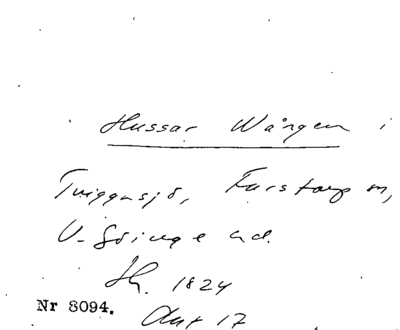 Hussar Wången i
Tviggasjö, Farstorp sn,
V. Göinge hd.
H. 1824
Nr 8094.
Aut 17